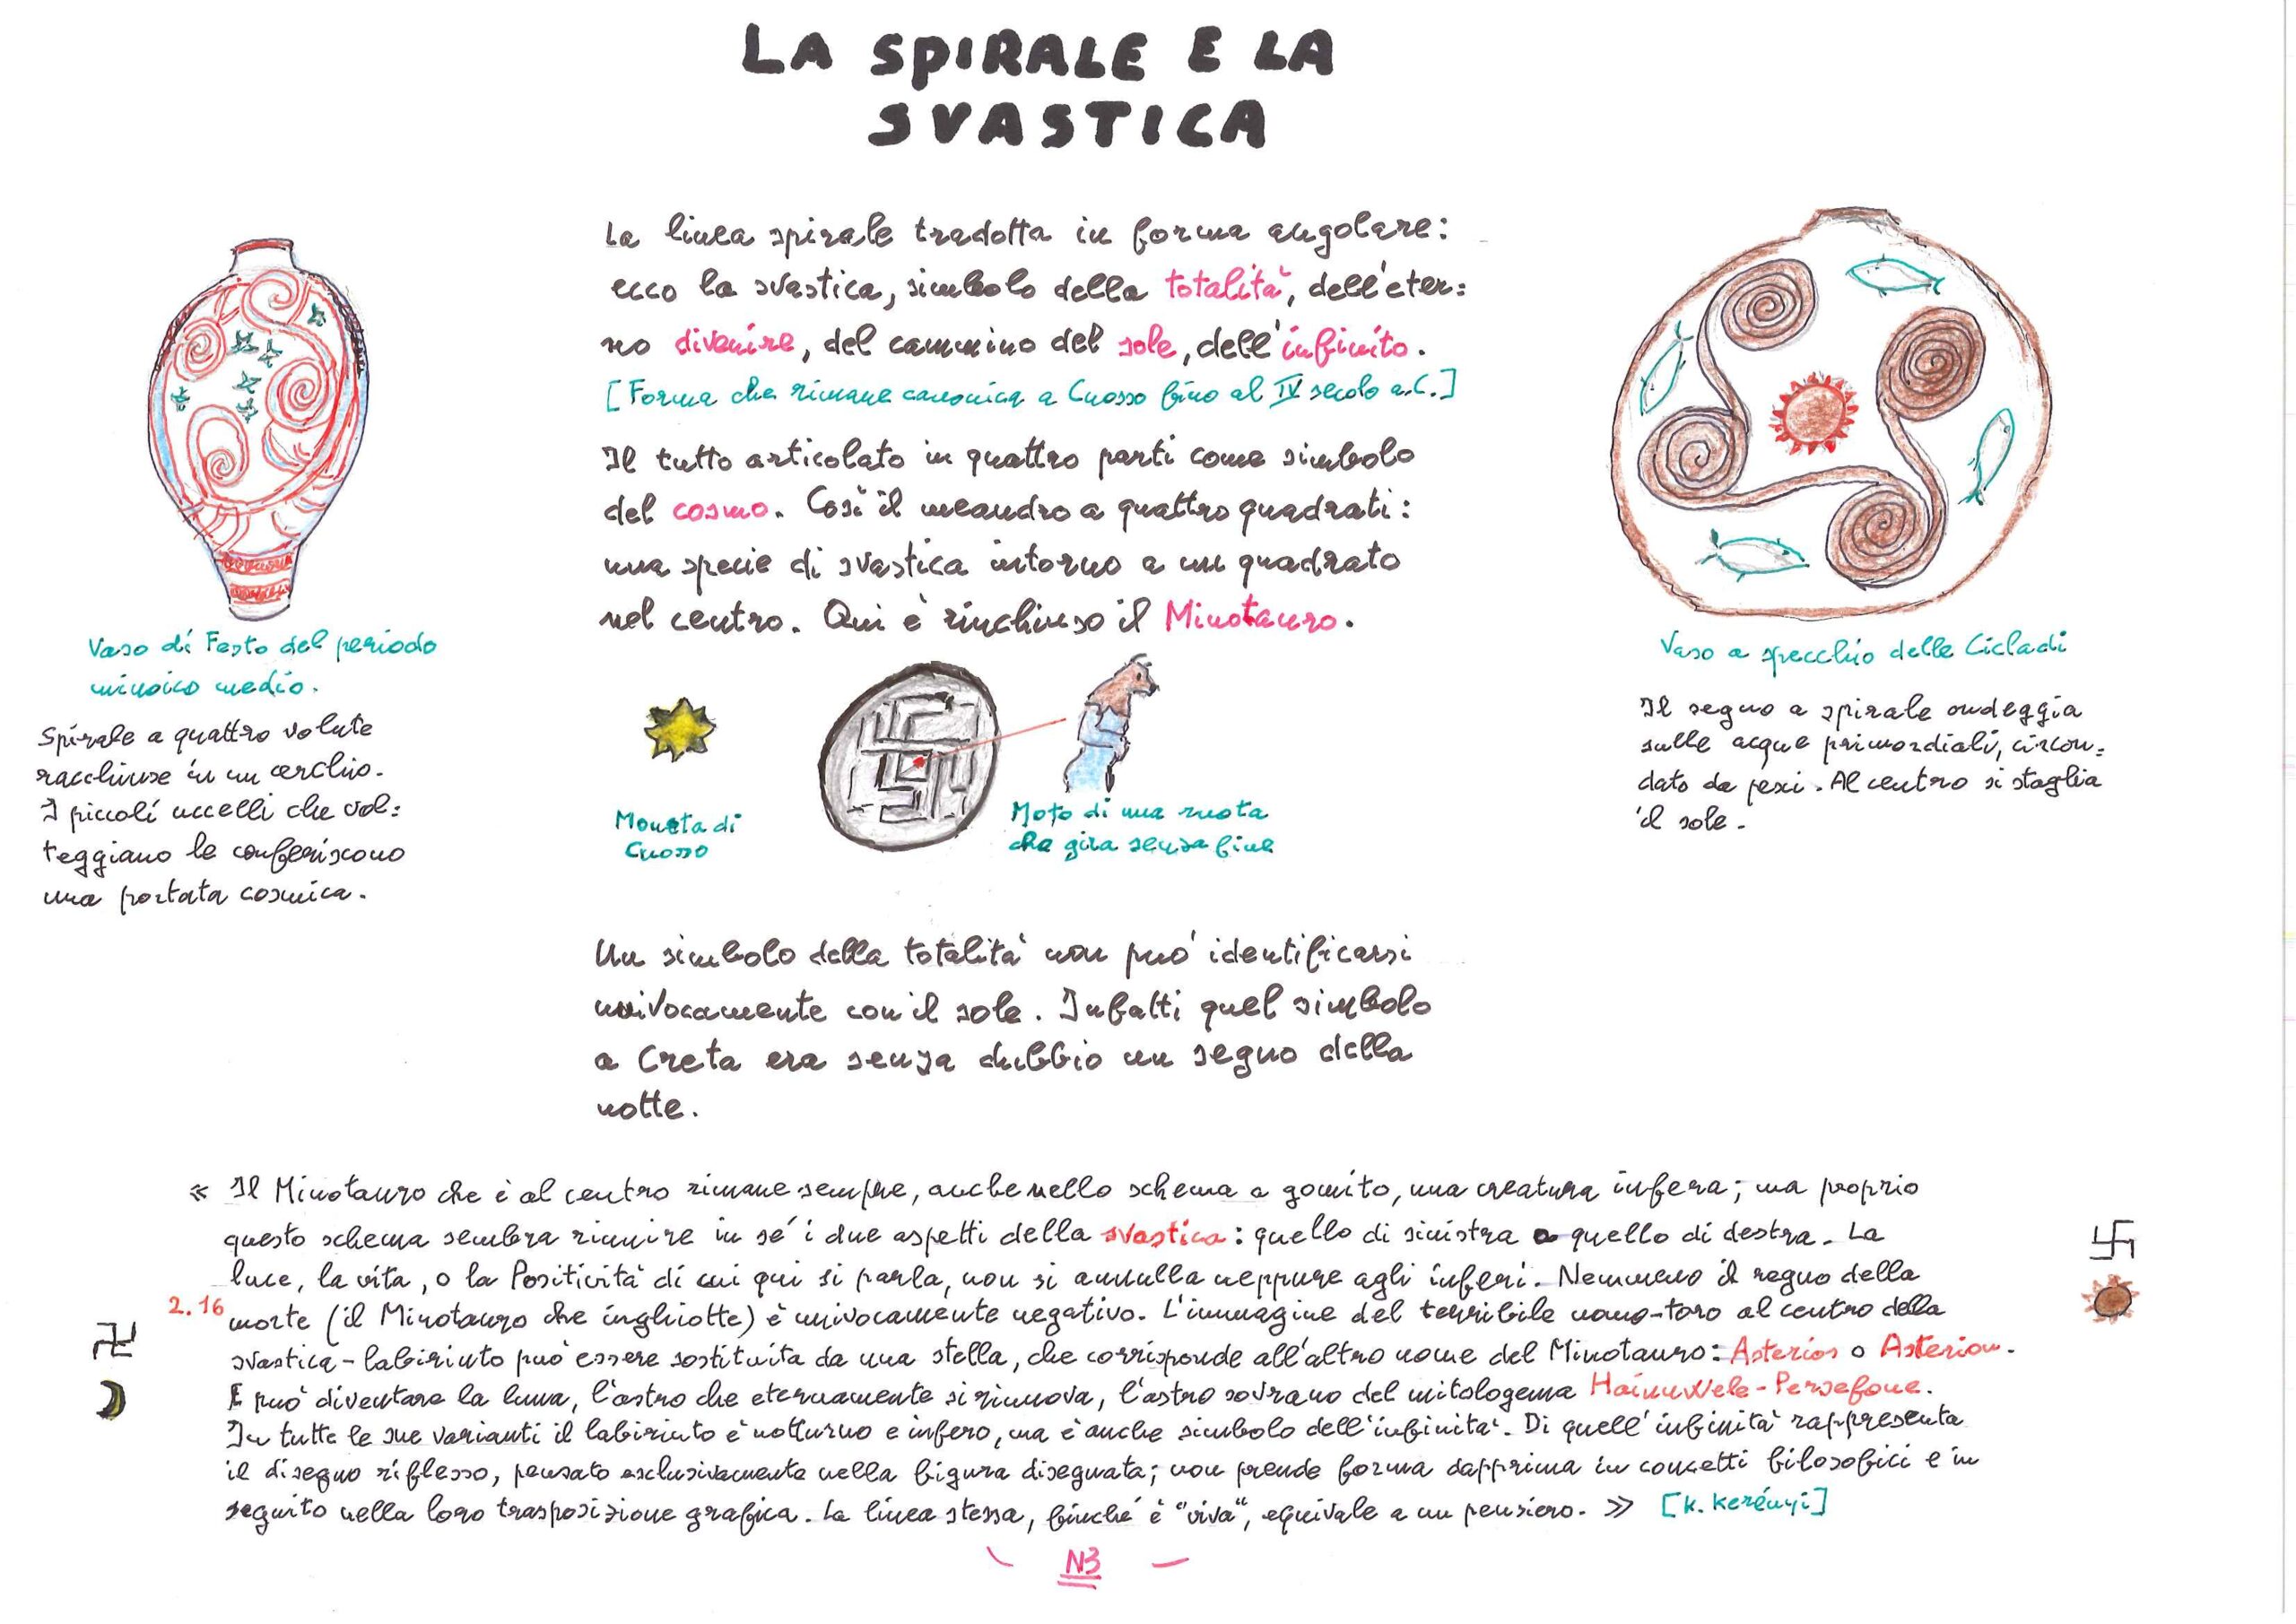 LA SPIRALE E LA
SVASTICA
La linea spirale tradotta in forma angolare:
ecco la svastica, simbolo della totalità, dell'eter=
no divenire, del cammino del sole, dell'infinito.
[Forma che rimane canonica a Cnosso fino al IV secolo a.C.]
Il tutto articolato in quattro parti come simbolo
del cosmo. Così il meandro a quattro quadrati:
una specie di svastica intorno a un quadrato
nel centro. Qui è rinchiuso il Minotauro.
Vaso di Festo del periodo
minoico medio.
Spirale a quattro volute
racchiuse in un cerchio.
I piccoli uccelli che vol=
teggiano le conferiscono
una portata cosmica.
Moneta di
Cnosso
Moto di una ruota
che gira senza fine
Vaso a specchio delle Cicladi
Il segno a spirale ondeggia
sulle acque primordiali, circon=
dato da pesci. Al centro si staglia
il sole.
Un simbolo della totalità non può identificarsi
univocamente con il sole. Infatti quel simbolo
a Creta era senza dubbio un segno della
notte.
« Il Minotauro che è al centro rimane sempre, anche nello schema a gomito, una creatura infera; ma proprio
questo schema sembra riunire in sé i due aspetti della svastica: quello di sinistra e quello di destra. La
luce, la vita, o la Positività di cui qui si parla, non si annulla neppure agli inferi. Nemmeno il regno della
2.16 morte (il Minotauro che inghiotte) è univocamente negativo. L'immagine del terribile uomo-toro al centro della
svastica-labirinto può essere sostituita da una stella, che corrisponde all'altro nome del Minotauro: Asterios o Asterion.
E può diventare la luna, l'astro che eternamente si rinnova, l'astro sovrano del mitologema HainuWele-Persefone.
In tutte le sue varianti il labirinto è notturno e infero, ma è anche simbolo dell'infinità. Di quell'infinità rappresenta
il disegno riflesso, pensato esclusivamente nella figura disegnata; non prende forma dapprima in concetti filosofici e in
seguito nella loro trasposizione grafica. La linea stessa, finché è "viva", equivale a un pensiero. » [K. Kerényi]
N3